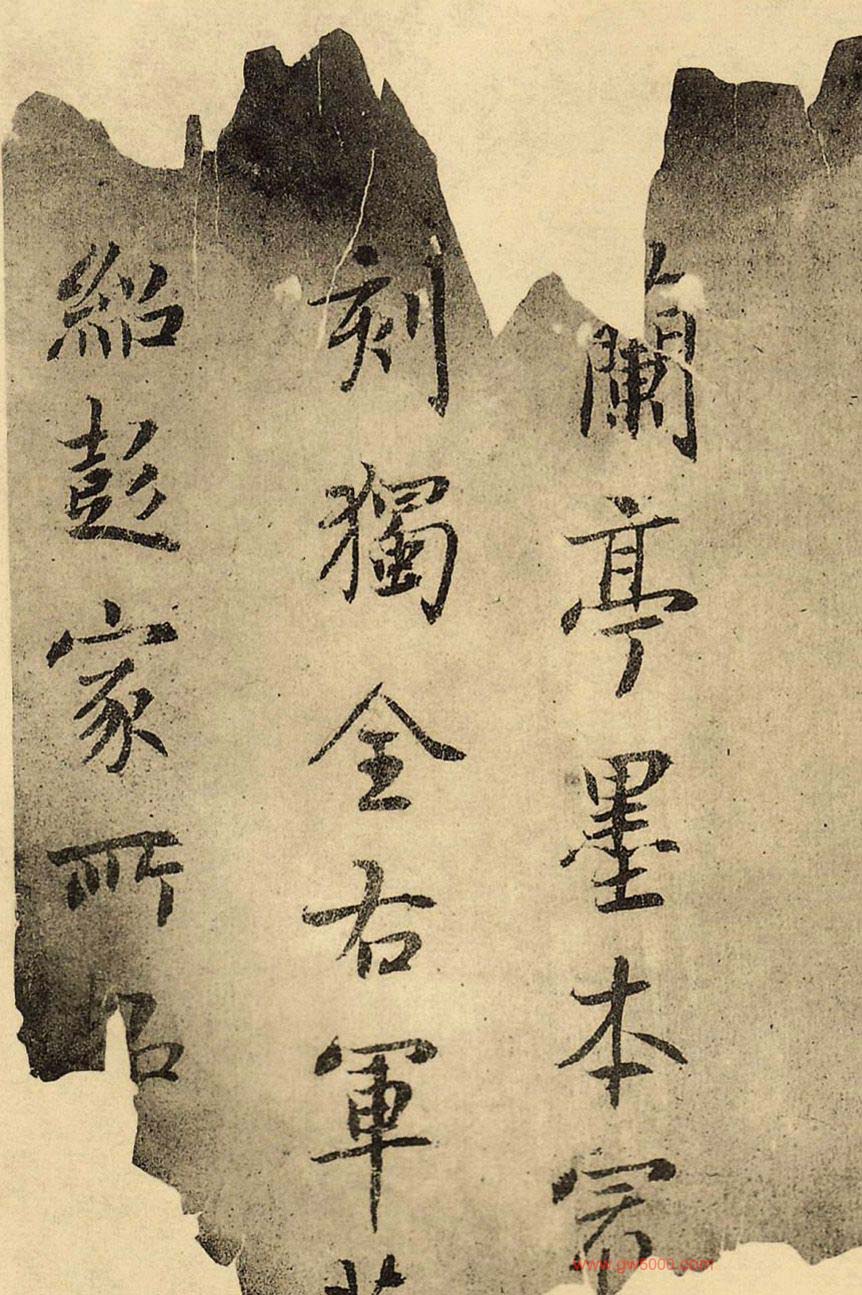 蘭亭墨本㝡
刻獨全右軍
紹彭家所拓
www.gw5000.com